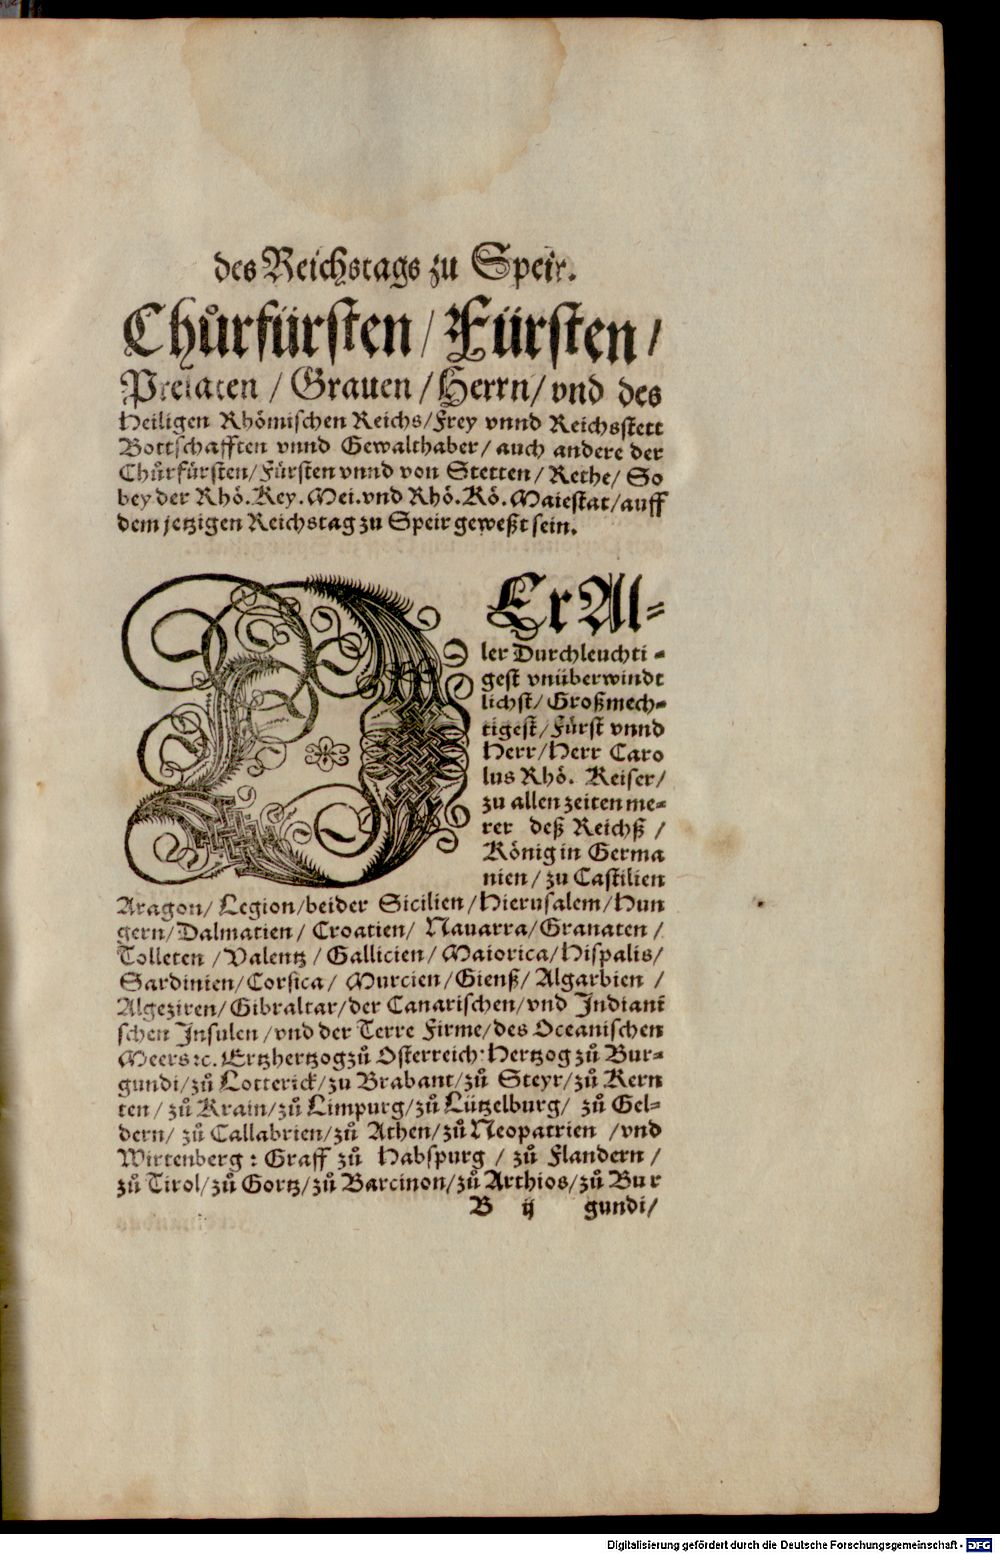 des Reichstags zu Speir.
Chůrfürsten / Fürsten /
Prelaten / Grauen / Herrn / vnd des
Heiligen Rhömischen Reichs / Frey vnnd Reichsstett
Bottschafften vnnd Gewalthaber / auch andere der
Chůrfürsten / Fürsten vnnd von Stetten / Rethe / So
bey der Rhö. Key. Mei. vnd Rhö. Kö. Maiestat / auff
dem jetzigen Reichstag zu Speir geweßt sein.
DEr Al-
ler Durchleuchti-
gest vnüberwindt
lichst / Großmech-
tigest / Fürst vnnd
Herr / Herr Caro
lus Rhö. Keiser /
zu allen zeiten me-
rer deß Reichß /
König in Germa
nien / zu Castilien
Aragon / Legion / beider Sicilien / Hierusalem / Hun
gern / Dalmatien / Croatien / Nauarra / Granaten /
Tolleten / Valentz / Gallicien / Maiorica / Hispalis /
Sardinien / Corsica / Murcien / Gienß / Algarbien /
Algeziren / Gibraltar / der Canarischen / vnd Indiani
schen Insulen / vnd der Terre Firme / des Oceanischen
Meers ꝛc. Ertzhertzog zů Osterreich: Hertzog zů Bur-
gundi / zů Lotterick / zu Brabant / zů Steyr / zů Kern
ten / zů Krain / zů Limpurg / zů Lützelburg / zů Gel-
dern / zů Callabrien / zů Athen / zů Neopatrien / vnd
Wirtenberg : Graff zů Habspurg / zů Flandern /
zů Tirol / zů Gortz / zů Barcinon / zů Arthios / zů Bur
B ij gundi /
Digitalisierung gefördert durch die Deutsche Forschungsgemeinschaft - DFG